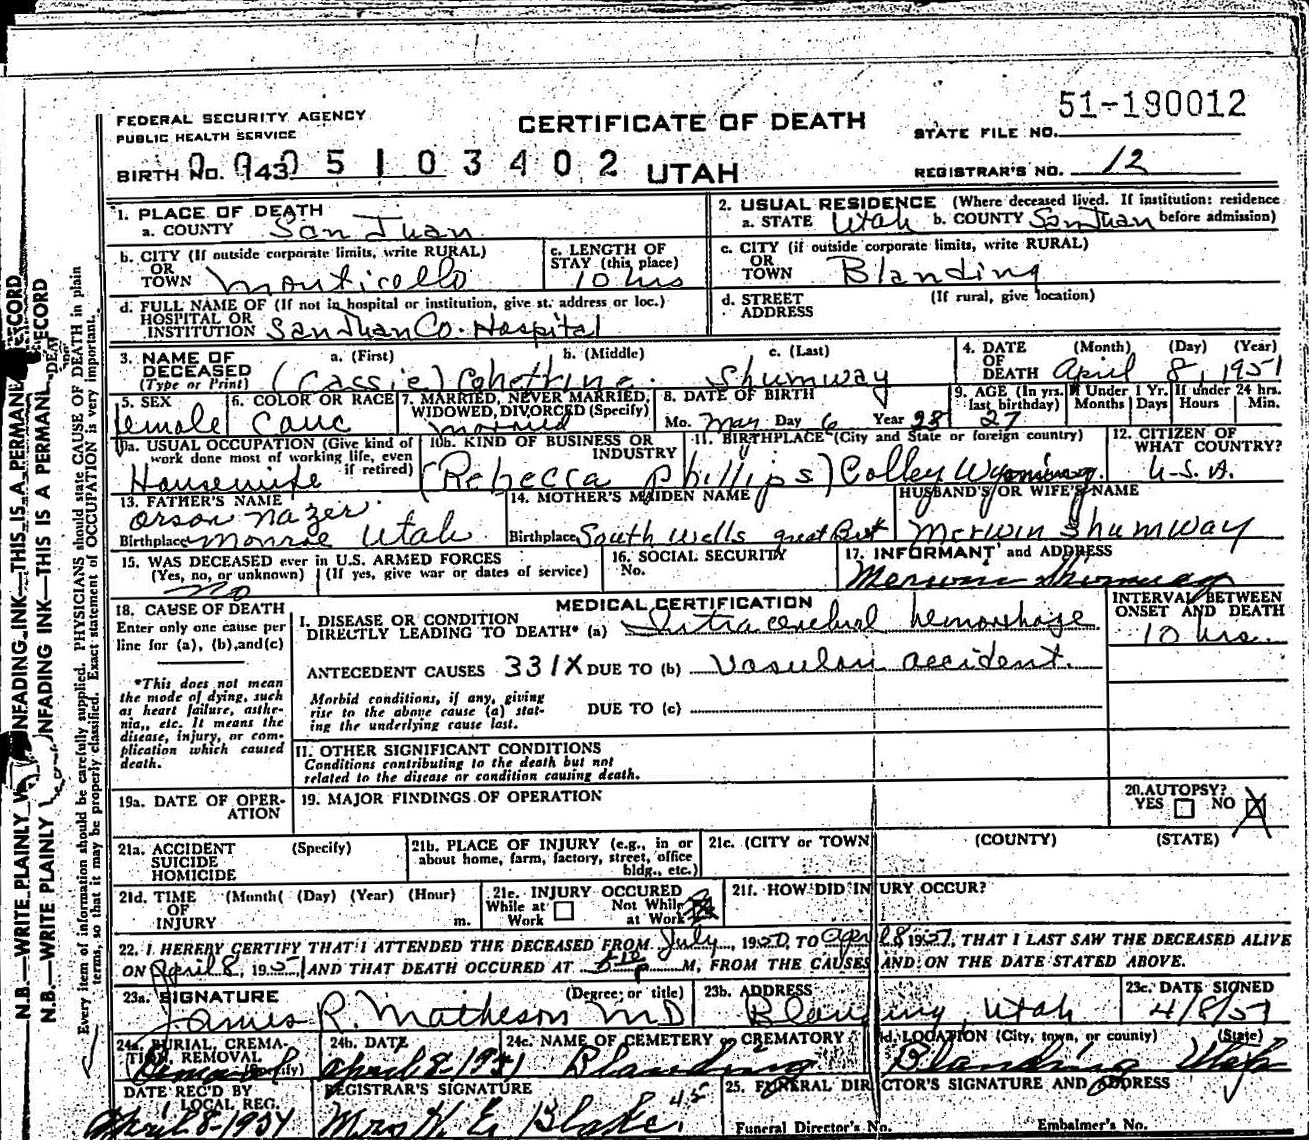 51-190012
FEDERAL SECURITY AGENCY
PUBLIC HEALTH SERVICE
CERTIFICATE OF DEATH
STATE FILE NO.
BIRTH NO. 143
0005103402
UTAH
REGISTRAR'S NO. 12
1. PLACE OF DEATH
a. COUNTY San Juan
2. USUAL RESIDENCE (Where deceased lived. If institution: residence before admission)
a. STATE Utah b. COUNTY San Juan
b. CITY (If outside corporate limits, write RURAL)
OR TOWN Monticello
c. LENGTH OF STAY (this place) 10 hrs
c. CITY (if outside corporate limits, write RURAL)
OR TOWN Blanding
d. FULL NAME OF (If not in hospital or institution, give st. address or loc.)
HOSPITAL OR INSTITUTION San Juan Co. Hospital
d. STREET ADDRESS (If rural, give location)
3. NAME OF DECEASED (Type or Print)
a. (First) b. (Middle) c. (Last)
(Cassie) Shumway
4. DATE OF DEATH (Month) (Day) (Year)
April 8, 1951
5. SEX female
6. COLOR OR RACE Cauc
7. MARRIED, NEVER MARRIED, WIDOWED, DIVORCED (Specify) Married
8. DATE OF BIRTH
Mo. May Day 6 Year 23
9. AGE (In yrs. last birthday) 27
If Under 1 Yr. Months Days
If under 24 hrs. Hours Min.
10a. USUAL OCCUPATION (Give kind of work done most of working life, even if retired)
Housewife
10b. KIND OF BUSINESS OR INDUSTRY
(Rebecca Phillips)
11. BIRTHPLACE (City and State or foreign country)
Colley Wyoming
12. CITIZEN OF WHAT COUNTRY?
U.S.A.
13. FATHER'S NAME
Orson Nazer
Birthplace Monroe Utah
14. MOTHER'S MAIDEN NAME
Birthplace South Wells great Brit
HUSBAND'S OR WIFE'S NAME
Merwin Shumway
15. WAS DECEASED ever in U.S. ARMED FORCES
(Yes, no, or unknown) (If yes, give war or dates of service)
No
16. SOCIAL SECURITY No.
17. INFORMANT and ADDRESS
Merwin Shumway
18. CAUSE OF DEATH
Enter only one cause per line for (a), (b), and (c)
MEDICAL CERTIFICATION
INTERVAL BETWEEN ONSET AND DEATH
10 hrs.
I. DISEASE OR CONDITION DIRECTLY LEADING TO DEATH* (a) Intracerebral hemorrhage
ANTECEDENT CAUSES 331X DUE TO (b) Vasulan accident.
*This does not mean the mode of dying, such as heart failure, asthenia, etc. It means the disease, injury, or complication which caused death.
Morbid conditions, if any, giving rise to the above cause (a) stating the underlying cause last.
DUE TO (c)
II. OTHER SIGNIFICANT CONDITIONS
Conditions contributing to the death but not related to the disease or condition causing death.
19a. DATE OF OPERATION
19. MAJOR FINDINGS OF OPERATION
20. AUTOPSY?
YES NO X
21a. ACCIDENT SUICIDE HOMICIDE (Specify)
21b. PLACE OF INJURY (e.g., in or about home, farm, factory, street, office bldg., etc.)
21c. (CITY or TOWN (COUNTY) (STATE)
21d. TIME OF INJURY (Month( (Day) (Year) (Hour) m.
21e. INJURY OCCURED
While at Work Not While at Work
21f. HOW DID INJURY OCCUR?
22. I HEREBY CERTIFY THAT I ATTENDED THE DECEASED FROM July, 1950, TO April 8 1951, THAT I LAST SAW THE DECEASED ALIVE
ON April 8, 1951 AND THAT DEATH OCCURED AT 5:10 P M, FROM THE CAUSES AND ON THE DATE STATED ABOVE.
23a. SIGNATURE (Degree or title)
James R. Matheson MD
23b. ADDRESS
Blanding, Utah
23c. DATE SIGNED
4/8/51
24a. BURIAL, CREMATION, REMOVAL (Specify)
Removal
24b. DATE
April 8-1951
24c. NAME OF CEMETERY or CREMATORY
Blanding
24d. LOCATION (City, town, or county) (State)
Blanding Utah
DATE REC'D BY LOCAL REG.
April 8-1951
REGISTRAR'S SIGNATURE
Mrs H. E. Blake. 45
25. FUNERAL DIRECTOR'S SIGNATURE AND ADDRESS
Funeral Director's No. Embalmer's No.
N.B.—WRITE PLAINLY WITH UNFADING INK—THIS IS A PERMANENT RECORD
N.B.—WRITE PLAINLY UNFADING INK—THIS IS A PERMANENT RECORD
Every item of information should be carefully supplied. PHYSICIANS should state CAUSE OF DEATH in plain
terms, so that it may be properly classified. Exact statement of OCCUPATION is very important.